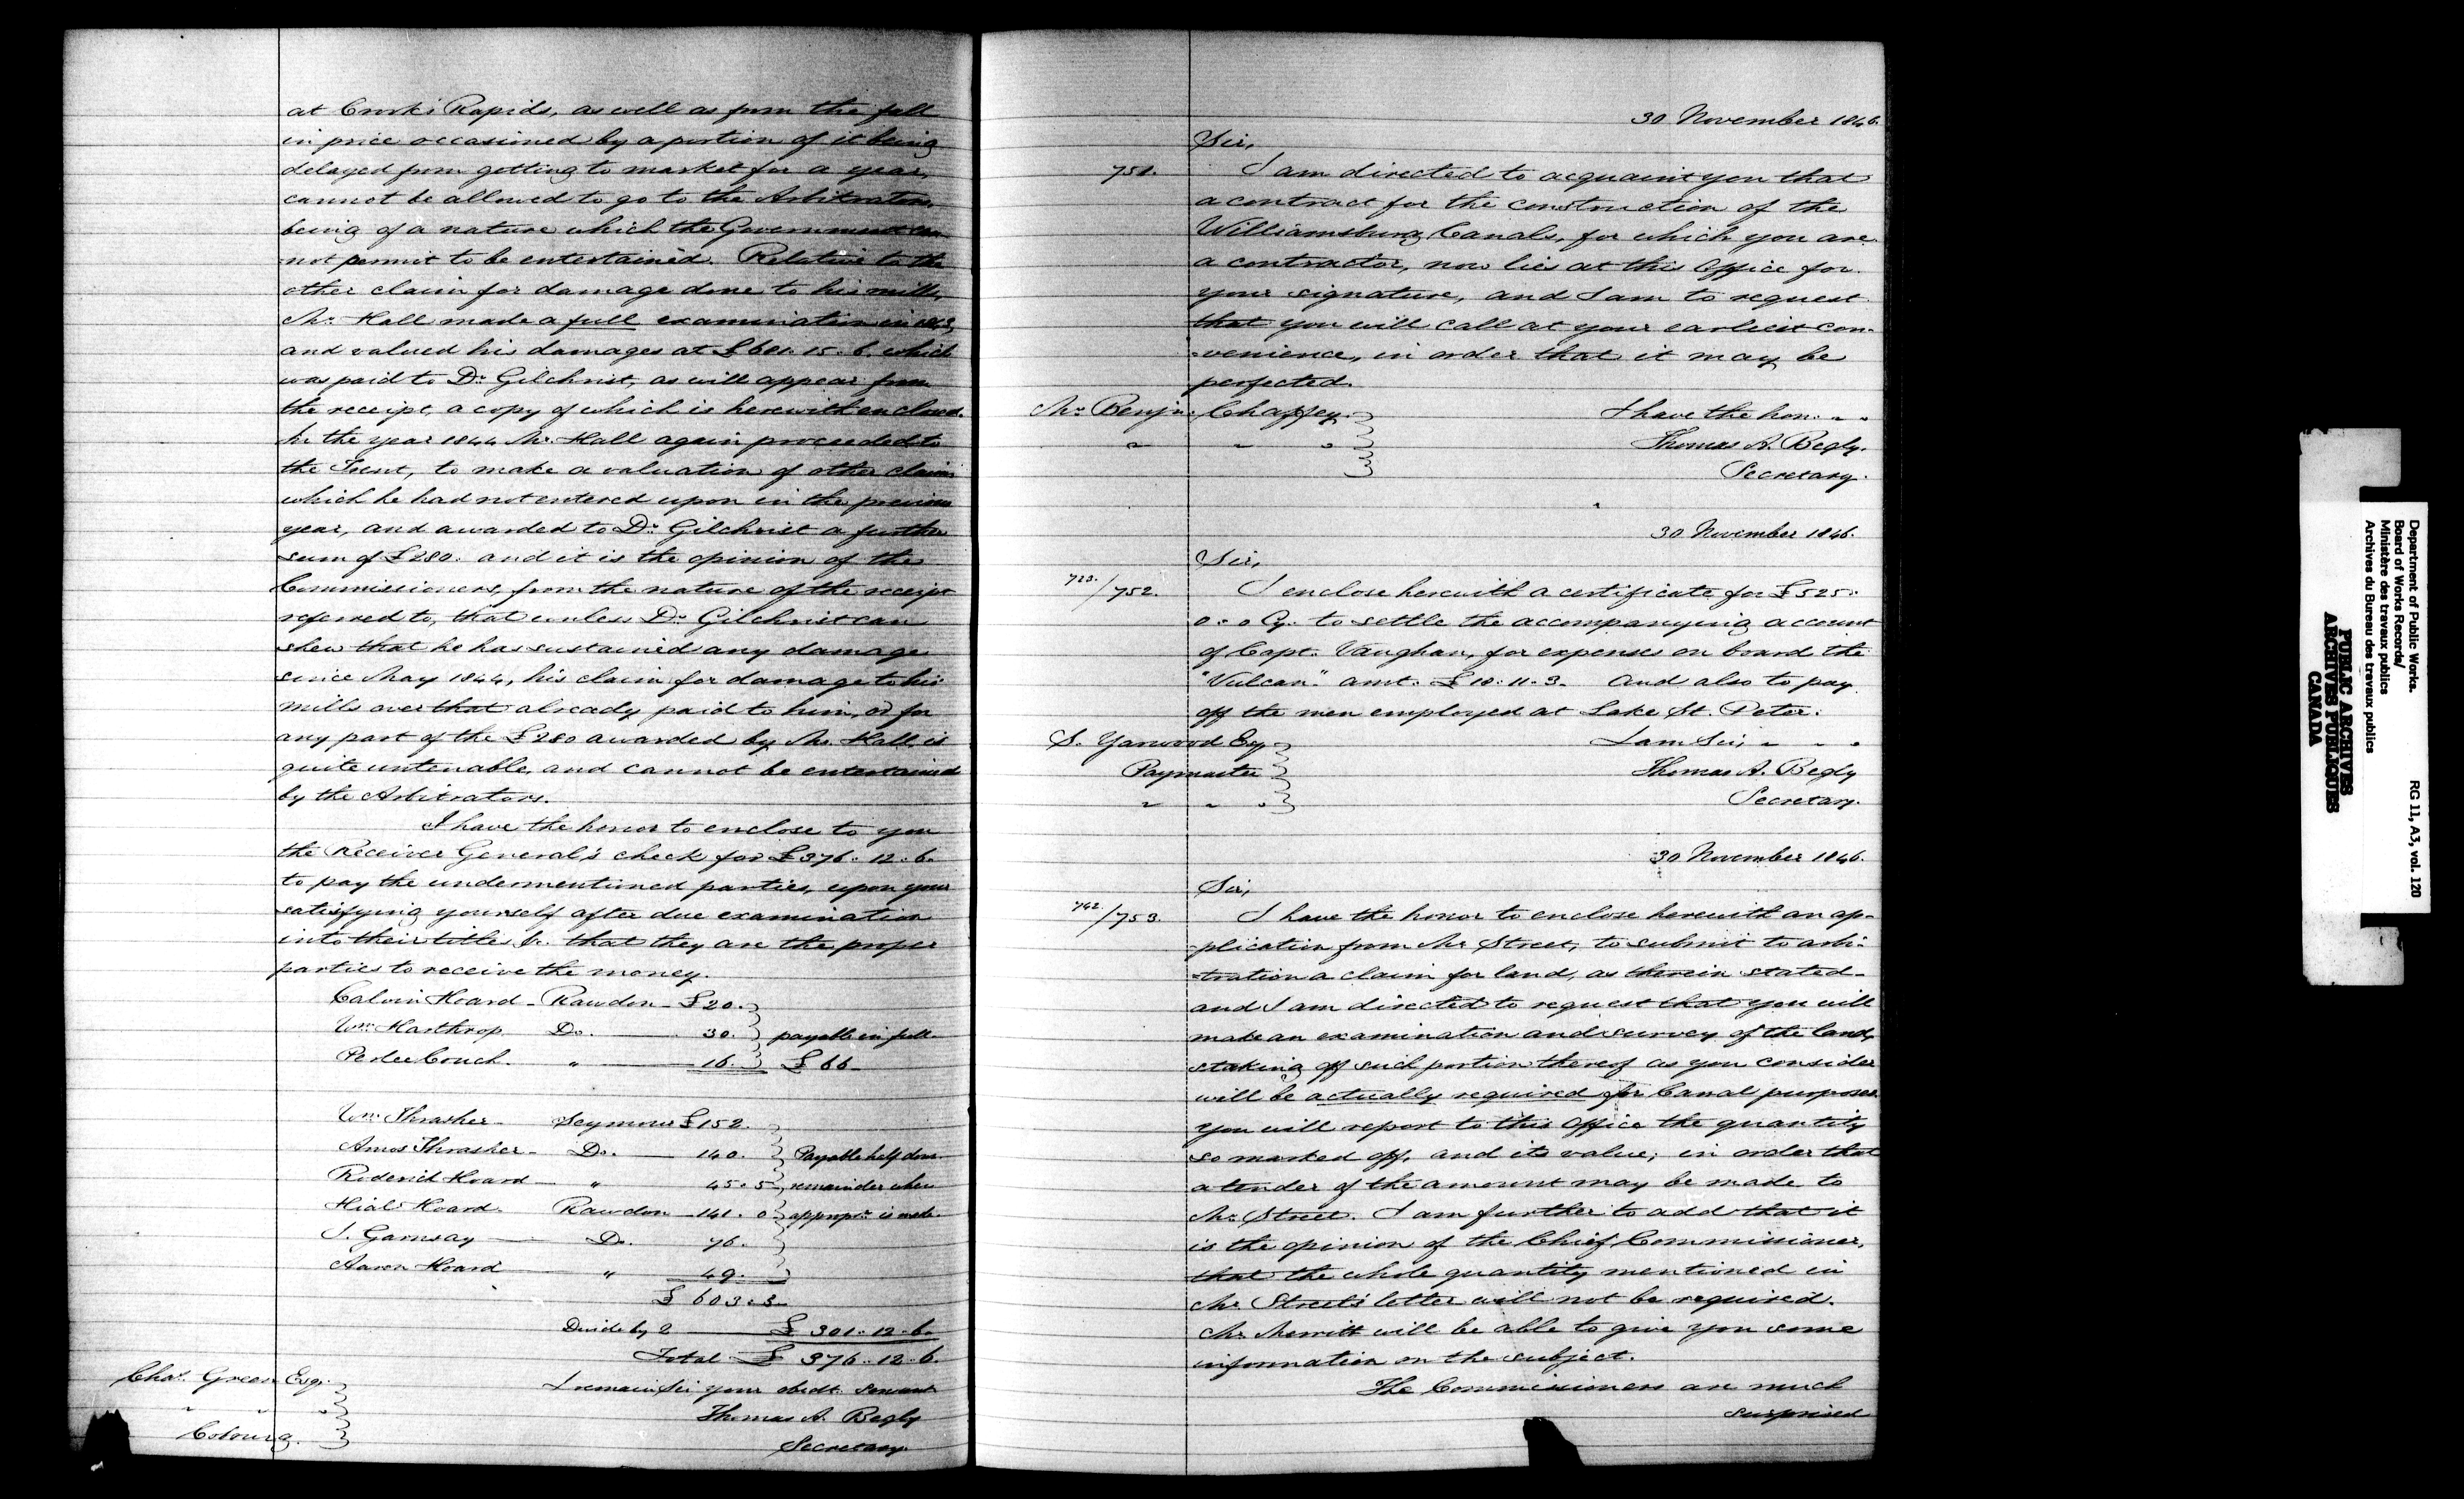 at Crook's Rapids, as well as from the fall
in price occasioned by a portion of it being
delayed from getting to market for a year,
cannot be allowed to go to the Arbitrators,
being of a nature which the Government can
not permit to be entertained. Relative to the
other claim for damage done to his mills,
Mr. Hall made a full examination in 1843,
and valued his damages at £681.15.6. which
was paid to Dr. Gilchrist, as will appear from
the receipt, a copy of which is herewith enclosed.
In the year 1844 Mr. Hall again proceeded to
the Trent, to make a valuation of other claims
which he had not entered upon in the previous
year, and awarded to Dr. Gilchrist a further
sum of £280. and it is the opinion of the
Commissioners, from the nature of the receipt
referred to, that unless Dr. Gilchrist can
shew that he has sustained any damage
since May 1844, his claim for damage to his
mills over that already paid to him, or for
any part of the £280 awarded by Mr. Hall, is
quite untenable, and cannot be entertained
by the Arbitrators.
I have the honor to enclose to you
the Receiver General's check for £376.12.6.
to pay the undermentioned parties, upon your
satisfying yourself after due examination
into their titles &c. that they are the proper
parties to receive the money.
Calvin Hoard - Rawdon - £20.
Wm. Harthrop. Do. 30. payable in full.
Perlee Couch. " 16. £66
Wm. Thrasher - Seymour £152.
Amos Thrasher - Do. 140. Payable half down
Roderick Hoard " 45.5 remainder when
Hial Hoard. Rawdon 141. 0 appropn. is made.
J. Garnsay Do. 76.
Aaron Hoard " 49.
£603.5
Divide by 2 £301.12.6.
Total £376.12.6.
Chas. Green Esqr.
" " "
Cobourg.
I remain Sir your obedt. Servant
Thomas A. Begly
Secretary.
30 November 1846.
Sir,
751. I am directed to acquaint you that
a contract for the construction of the
Williamsburg Canals, for which you are
a contractor, now lies at this Office for
your signature, and I am to request
that you will call at your earliest con-
-venience, in order that it may be
perfected.
Mr. Benjn. Chaffey. I have the hon. " "
" " " Thomas A. Begly.
Secretary.
30 November 1846.
Sir,
723./752. I enclose herewith a certificate for £525.
0.0 Cy. to settle the accompanying account
of Capt. Vaughan, for expenses on board the
"Vulcan." amt. £10.11.3. And also to pay
off the men employed at Lake St. Peter.
S. Yarwood Esq. I am Sir, " " "
Paymaster Thomas A. Begly
" " " Secretary.
30 November 1846.
Sir,
742./753. I have the honor to enclose herewith an ap-
-plication from Mr. Street, to submit to arbi-
-tration a claim for land, as therein stated -
and I am directed to request that you will
make an examination and survey of the land,
staking off such portion thereof as you consider
will be actually required for Canal purposes
you will report to this Office the quantity
so marked off, and its value; in order that
a tender of the amount may be made to
Mr. Street. I am further to add that it
is the opinion of the Chief Commissioner,
that the whole quantity mentioned in
Mr. Street's letter will not be required.
Mr. Merritt will be able to give you some
information on the subject.
The Commissioners are much
surprised
Department of Public Works.
Board of Works Records/
Ministère des travaux publics
Archives du Bureau des travaux publics
RG 11, A3, vol. 120
PUBLIC ARCHIVES
ARCHIVES PUBLIQUES
CANADA